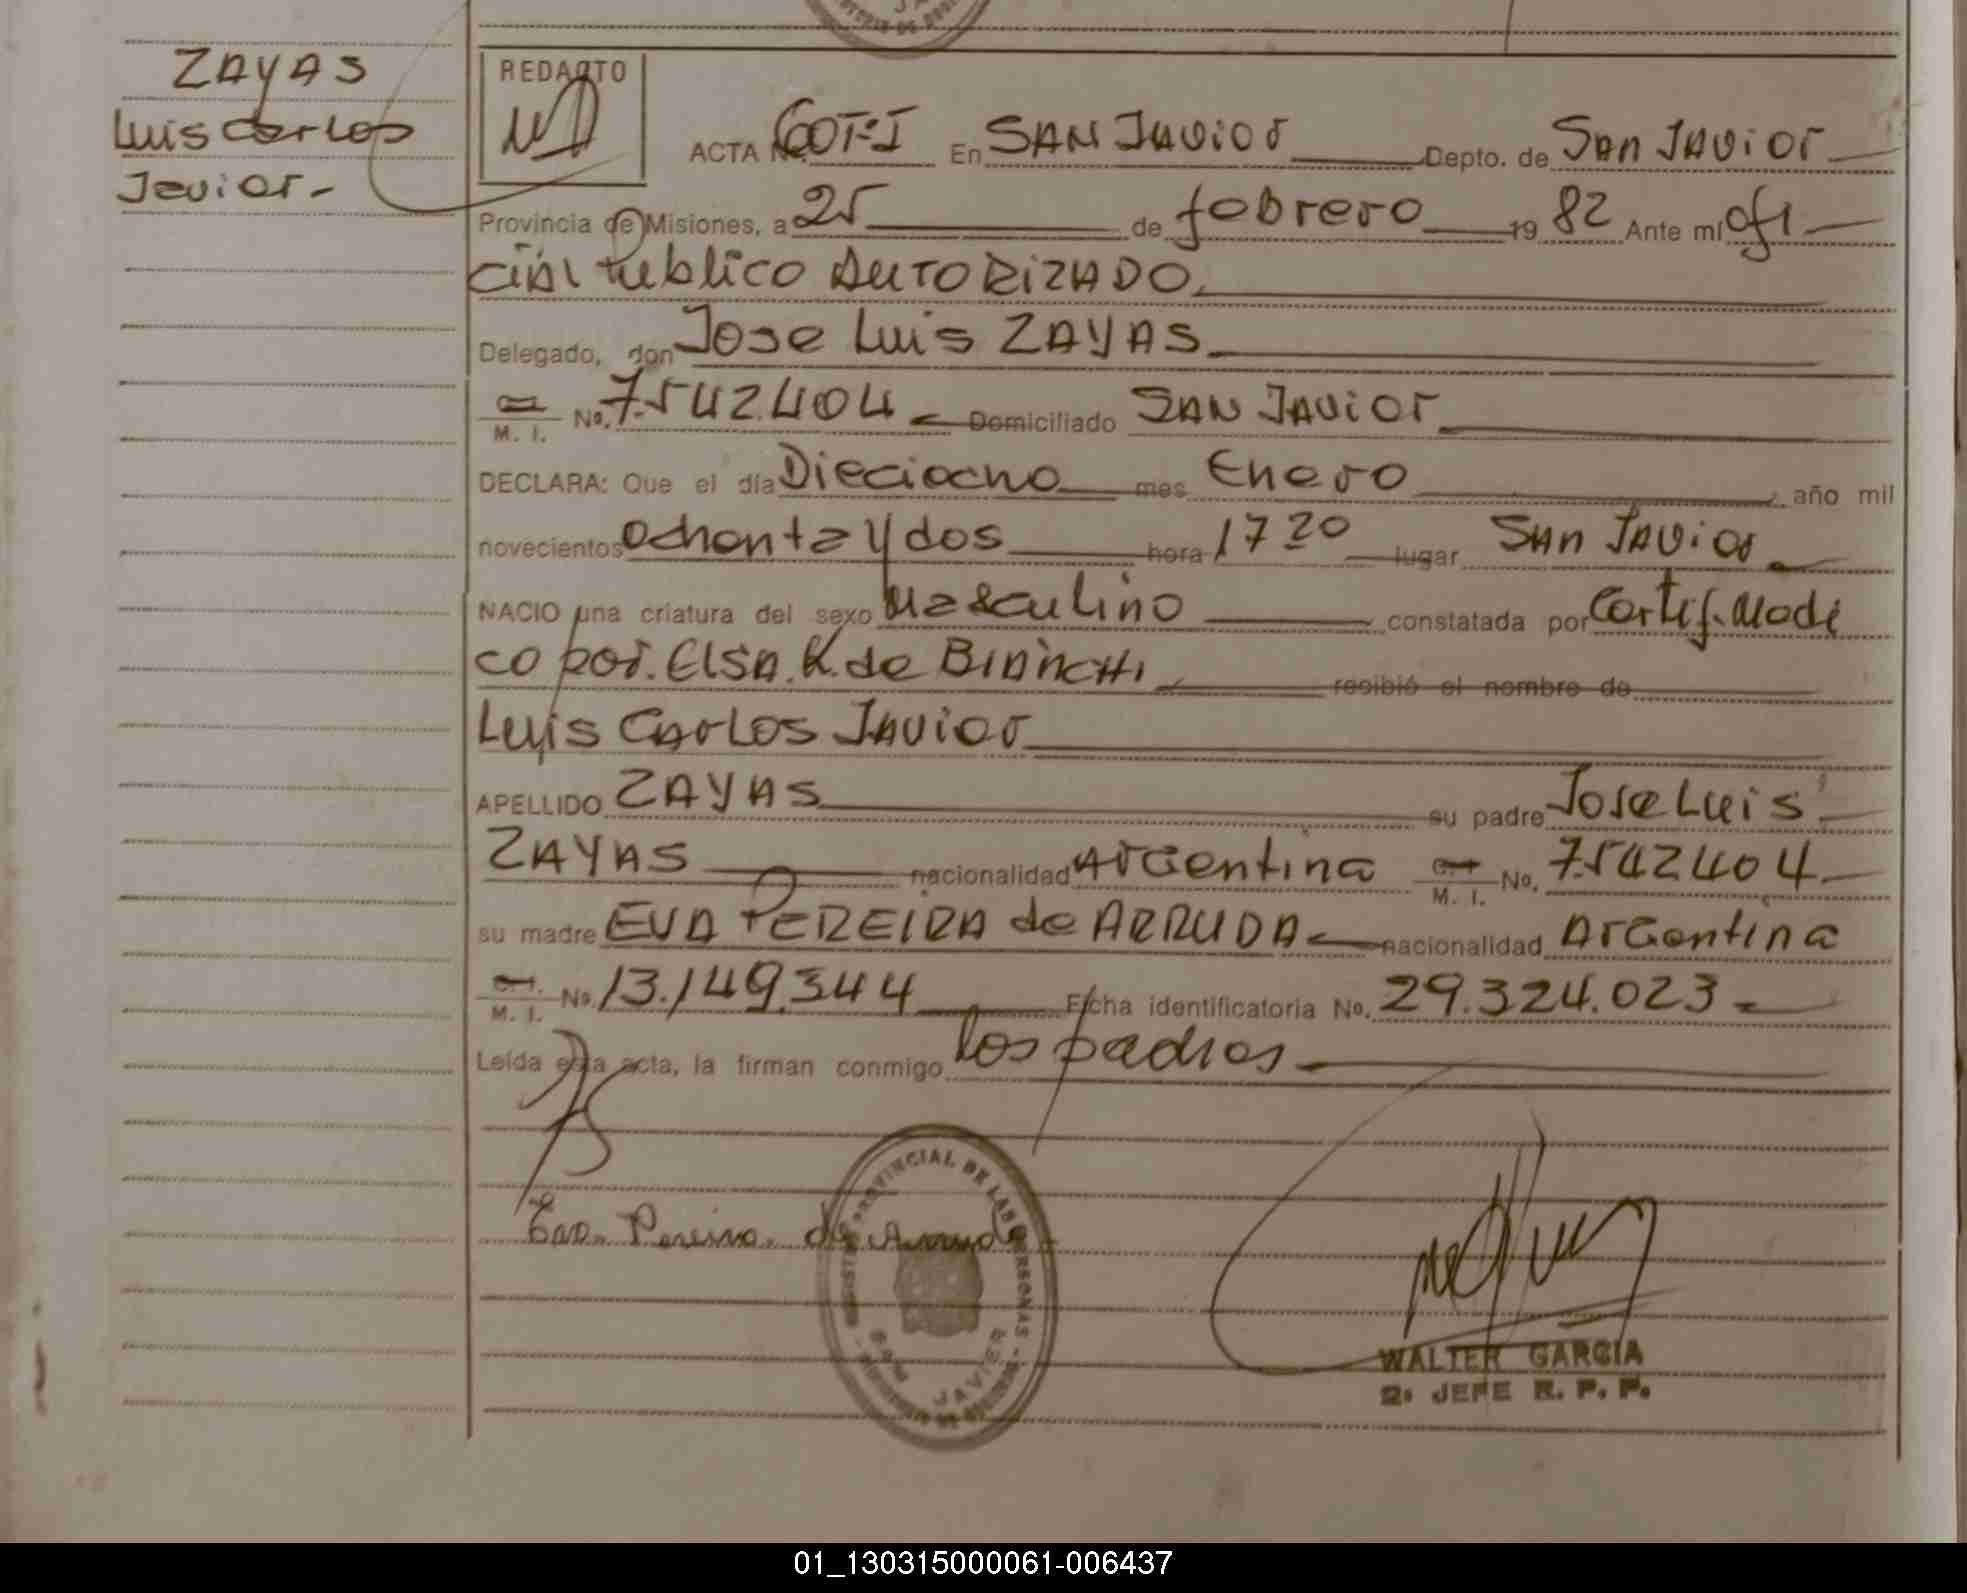 ZAYAS
Luis Carlos
Javier-
REDACTO
ACTA No. 60T-I En SAN JAVIER Depto. de San JAVIER
Provincia de Misiones, a 25 de febrero 19 82 Ante mí ofi
CiAl Publico AUTORIZADO.
Delegado, don Jose Luis ZAYAS
M. I. No. 7.542.404 Domiciliado SAN JAVIER
DECLARA: Que el día Dieciocho mes Enero año mil
novecientos ochenta y dos hora 17 20 lugar San JAVier
NACIO una criatura del sexo Masculino constatada por Certif. Medi
co por. ElSA. K. de BIANCHI recibió el nombre de
Luis CARLOS JAVIER
APELLIDO ZAYAS su padre Jose Luis
ZAYAS nacionalidad ARGentina C.I. M. I. No. 7.542404
su madre EVA PEREIRA de ARRUDA nacionalidad ARGentina
C.I. M. I. No. 13.149.344 Ficha identificatoria No. 29.324.023
Leída esta acta, la firman conmigo los padres
Eva. Pereira. de Arruda
PROVINCIAL DE LAS PERSONAS
SAN JAVIER
WALTER GARCIA
2º JEFE R. P. P.
01_130315000061-006437